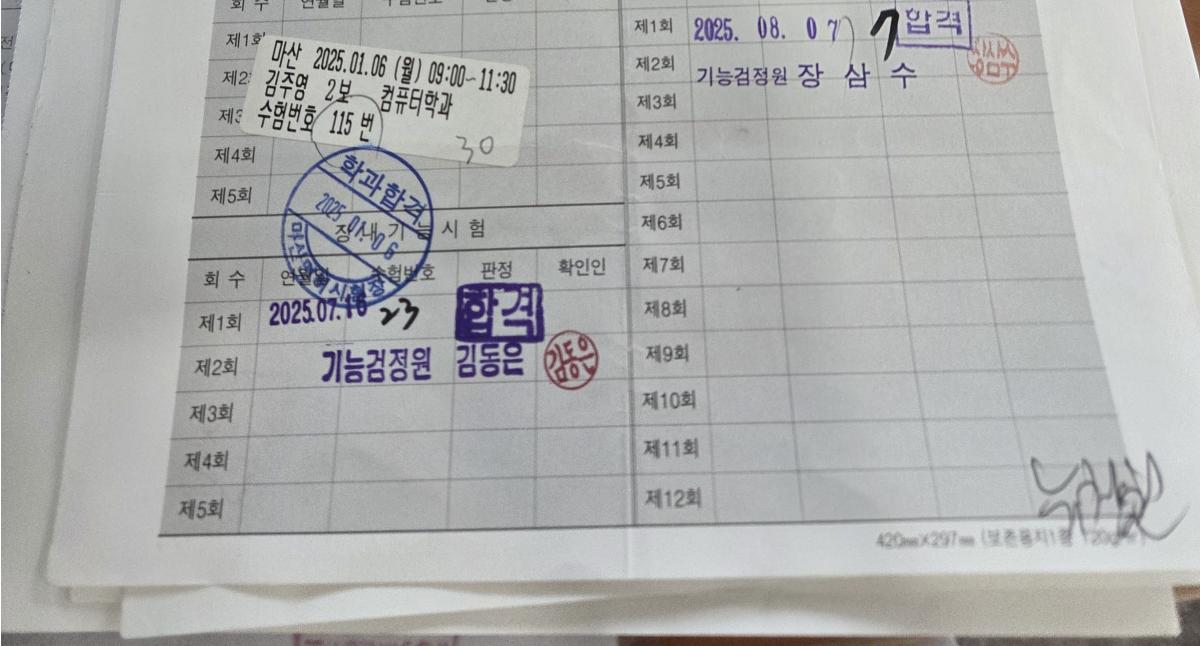 회 수
제1회
마산 2025.01.06 (월) 09:00~11:30
김주영 2보 컴퓨터학과
수험번호 115 번
30
제2
제3
제4회
제5회
학과합격
2025. 01. 06
장내기능시험
회 수 연월일 수험번호 판정 확인인
제1회 2025.07.16 23 합격
제2회 기능검정원 김동은 김동은
제3회
제4회
제5회
제1회 2025. 08. 07 7 합격
제2회 기능검정원 장 삼 수
제3회
제4회
제5회
제6회
제7회
제8회
제9회
제10회
제11회
제12회
420㎜×297㎜